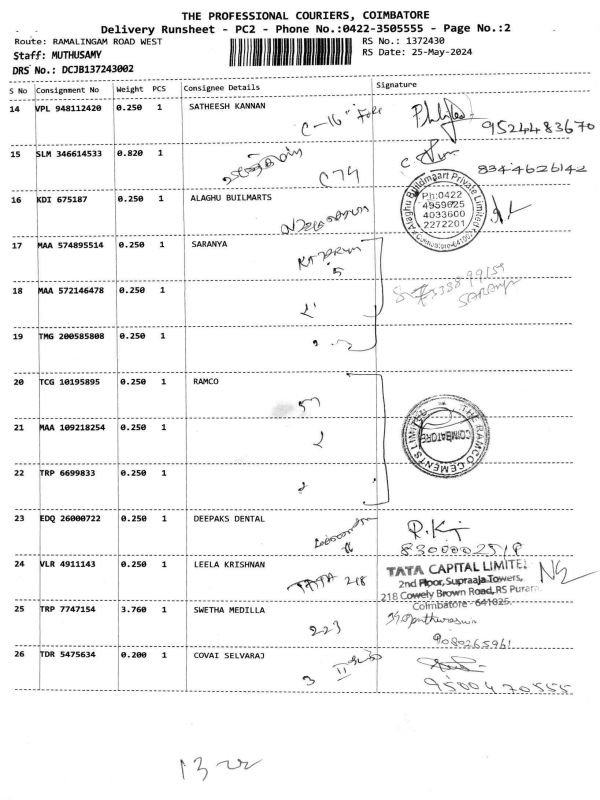 THE PROFESSIONAL COURIERS, COIMBATORE
Delivery Runsheet - PC2 - Phone No.:0422-3505555 - Page No.:2
Route: RAMALINGAM ROAD WEST RS No.: 1372430
Staff: MUTHUSAMY RS Date: 25-May-2024
DRS No.: DCJB137243002
S No Consignment No Weight PCS Consignee Details Signature
14 VPL 948112420 0.250 1 SATHEESH KANNAN
C-16"
9524483670
15 SLM 346614533 0.820 1
C74
8344626142
16 KDI 675187 0.250 1 ALAGHU BUILMARTS
Alaghu Buildmaart Private Limited
Ph:0422
4959625
4033600
2272201
17 MAA 574895514 0.250 1 SARANYA
5
18 MAA 572146478 0.250 1
SARANYA
19 TMG 200585808 0.250 1
20 TCG 10195895 0.250 1 RAMCO
THE RAMCO CEMENTS LIMITED
COIMBATORE
21 MAA 109218254 0.250 1
22 TRP 6699833 0.250 1
23 EDQ 26000722 0.250 1 DEEPAKS DENTAL
24 VLR 4911143 0.250 1 LEELA KRISHNAN
TATA 218
TATA CAPITAL LIMITED
2nd Floor, Supraaja Towers,
218 Cowely Brown Road, RS Puram,
Coimbatore-641025.
25 TRP 7747154 3.760 1 SWETHA MEDILLA
223
9080265961
26 TDR 5475634 0.200 1 COVAI SELVARAJ
3
9500470555